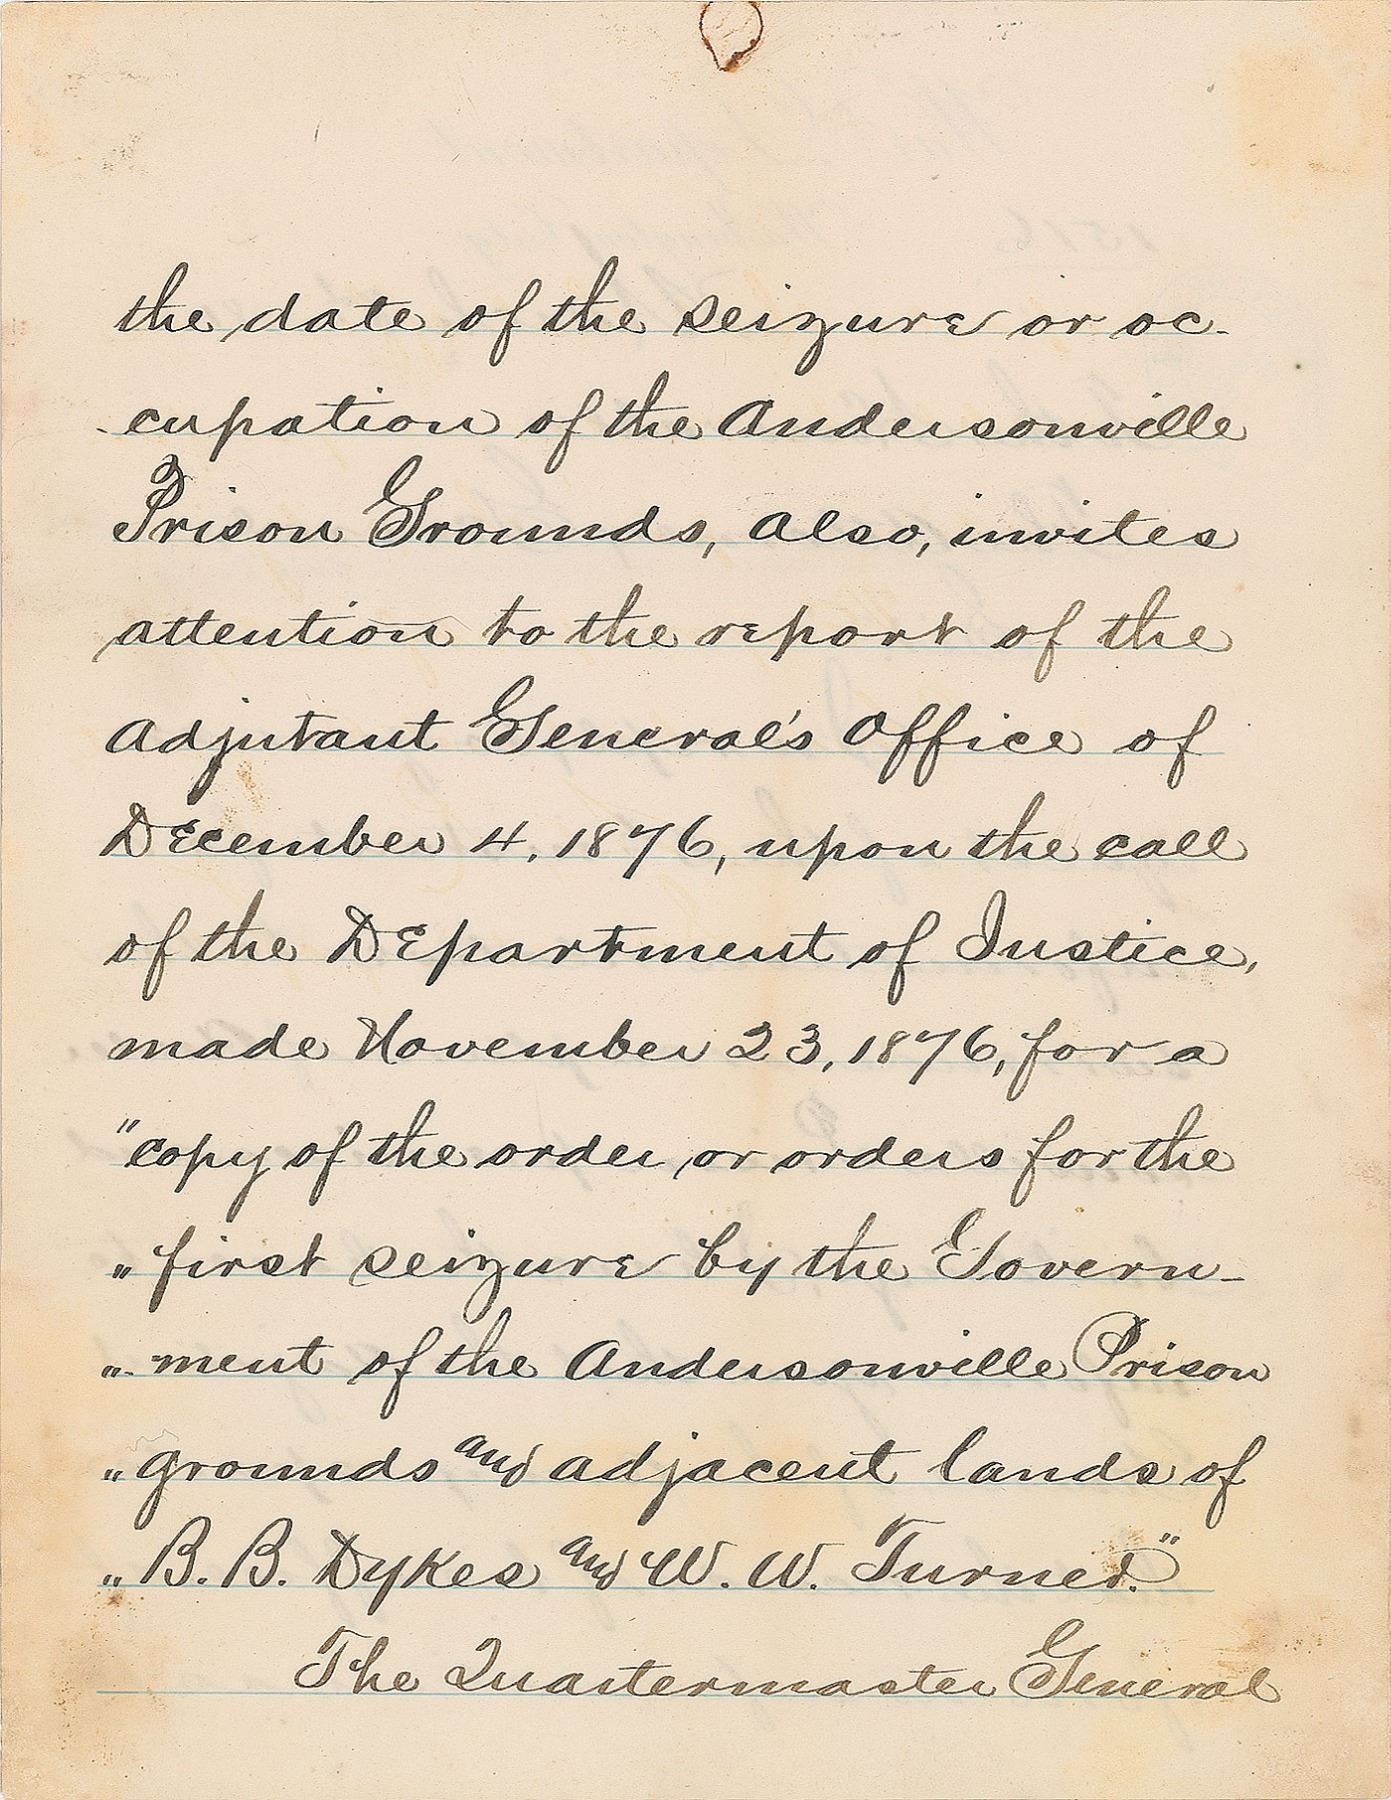 the date of the seizure or oc-
-cupation of the Andersonville
Prison Grounds, also, invites
attention to the report of the
Adjutant General's Office of
December 4, 1876, upon the call
of the Department of Justice,
made November 23, 1876, for a
"copy of the order, or orders for the
" first seizure by the Govern-
"-ment of the Andersonville Prison
" grounds and adjacent lands of
" B. B. Dykes and W. W. Turner."
The Quartermaster General